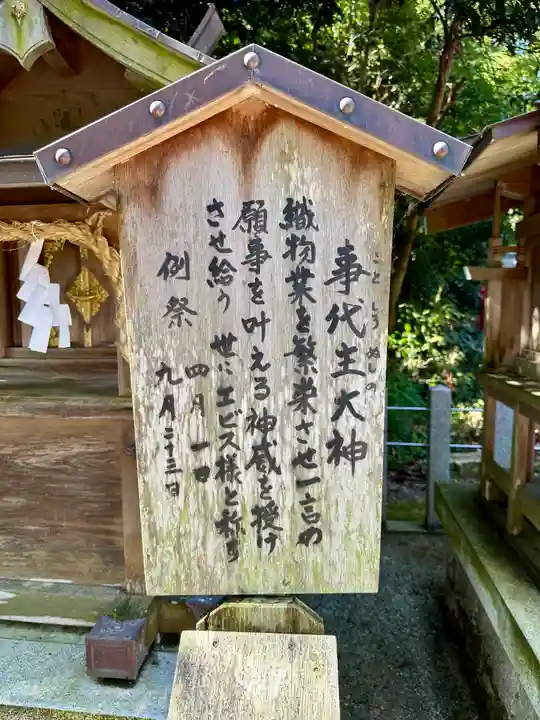 事代主大神
ことしろぬしの
織物業を繁栄させ一言の
願事を叶える神威を授け
させ給う 世にエビス様と称す
例祭 四月一日
九月二十三日